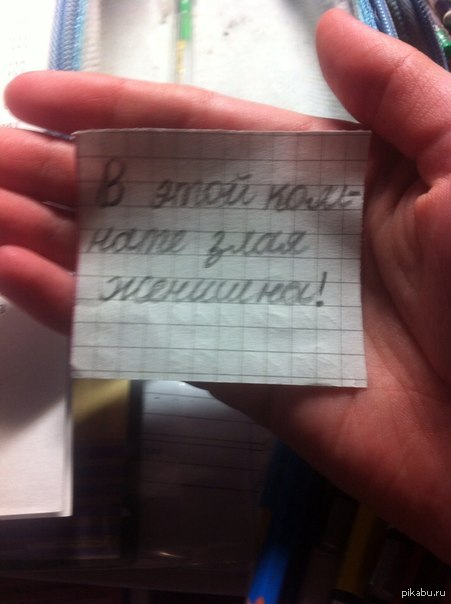 В этой ком-
нате злая
женщина!
pikabu.ru